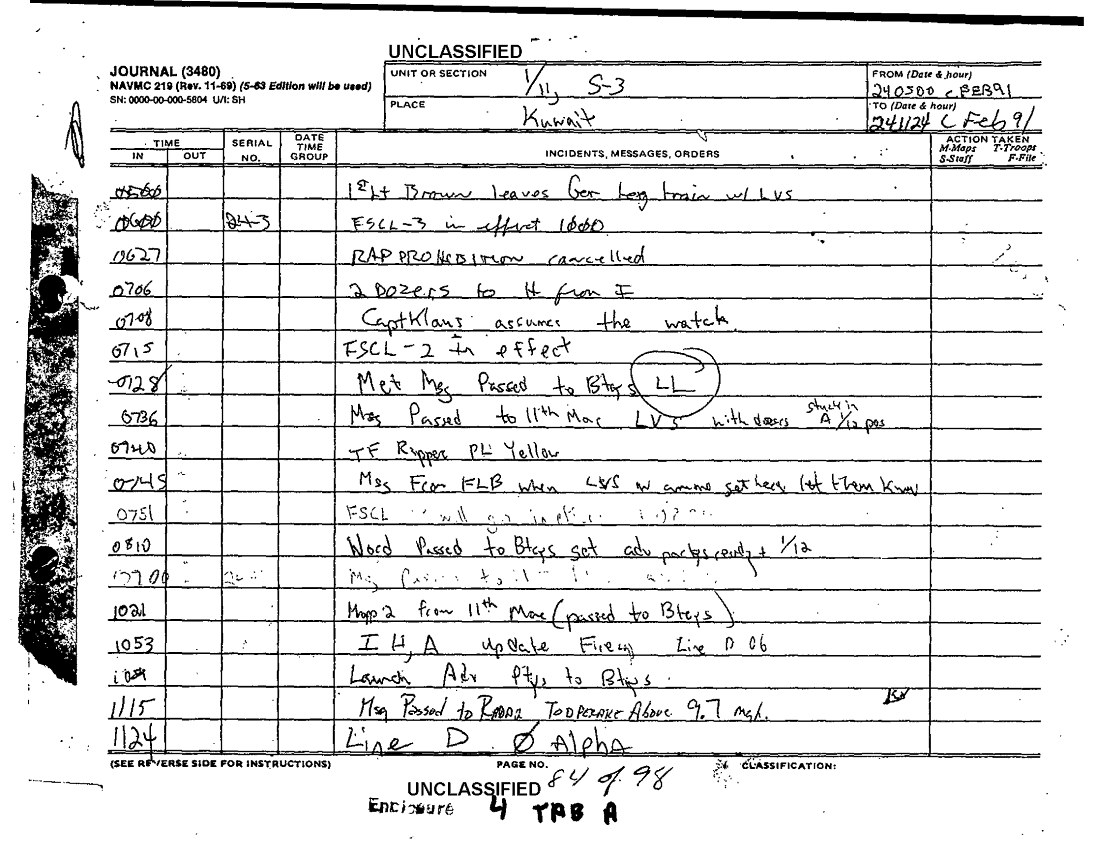 UNCLASSIFIED
JOURNAL (3480)
NAVMC 219 (Rev. 11-69) (5-63 Edition will be used)
SN: 0000-00-000-5604 U/I: SH
UNIT OR SECTION 1/11, S-3
PLACE Kuwait
FROM (Date & hour)
240500 C FEB91
TO (Date & hour)
241124 C Feb 91
TIME IN OUT SERIAL NO. DATE TIME GROUP INCIDENTS, MESSAGES, ORDERS ACTION TAKEN M-Maps T-Troops S-Staff F-File
0500 1st Lt Brown leaves for train w/ LVS
0600 24-3 FSCL-3 in effect 1000
0627 RAP PROHIBITION cancelled
0706 2 Dozers to H from I
0708 Capt Klaus assumes the watch
0715 FSCL-2 in effect
0728 Met Msg Passed to Btrys LL
0736 Msg Passed to 11th Mar LVS with dozers stuck in A 1/12 pos
0740 TF Ripper PL Yellow
0745 Msg From FLB when LVS w ammo get here let them know
0751 FSCL will go in
0810 Word Passed to Btrys get adv partys ready 1/12
0900 Msg
1021 Mopp 2 from 11th Mar (passed to Btrys)
1053 I H, A update Firing Line D 06
Launch Adv Ptys to Btrys
1115 Msg Passed to Radar To operate Above 9.7 mgh.
1124 Line D Ø Alpha
(SEE REVERSE SIDE FOR INSTRUCTIONS) PAGE NO. CLASSIFICATION:
UNCLASSIFIED 84 of 98
Enclosure 4 TAB A